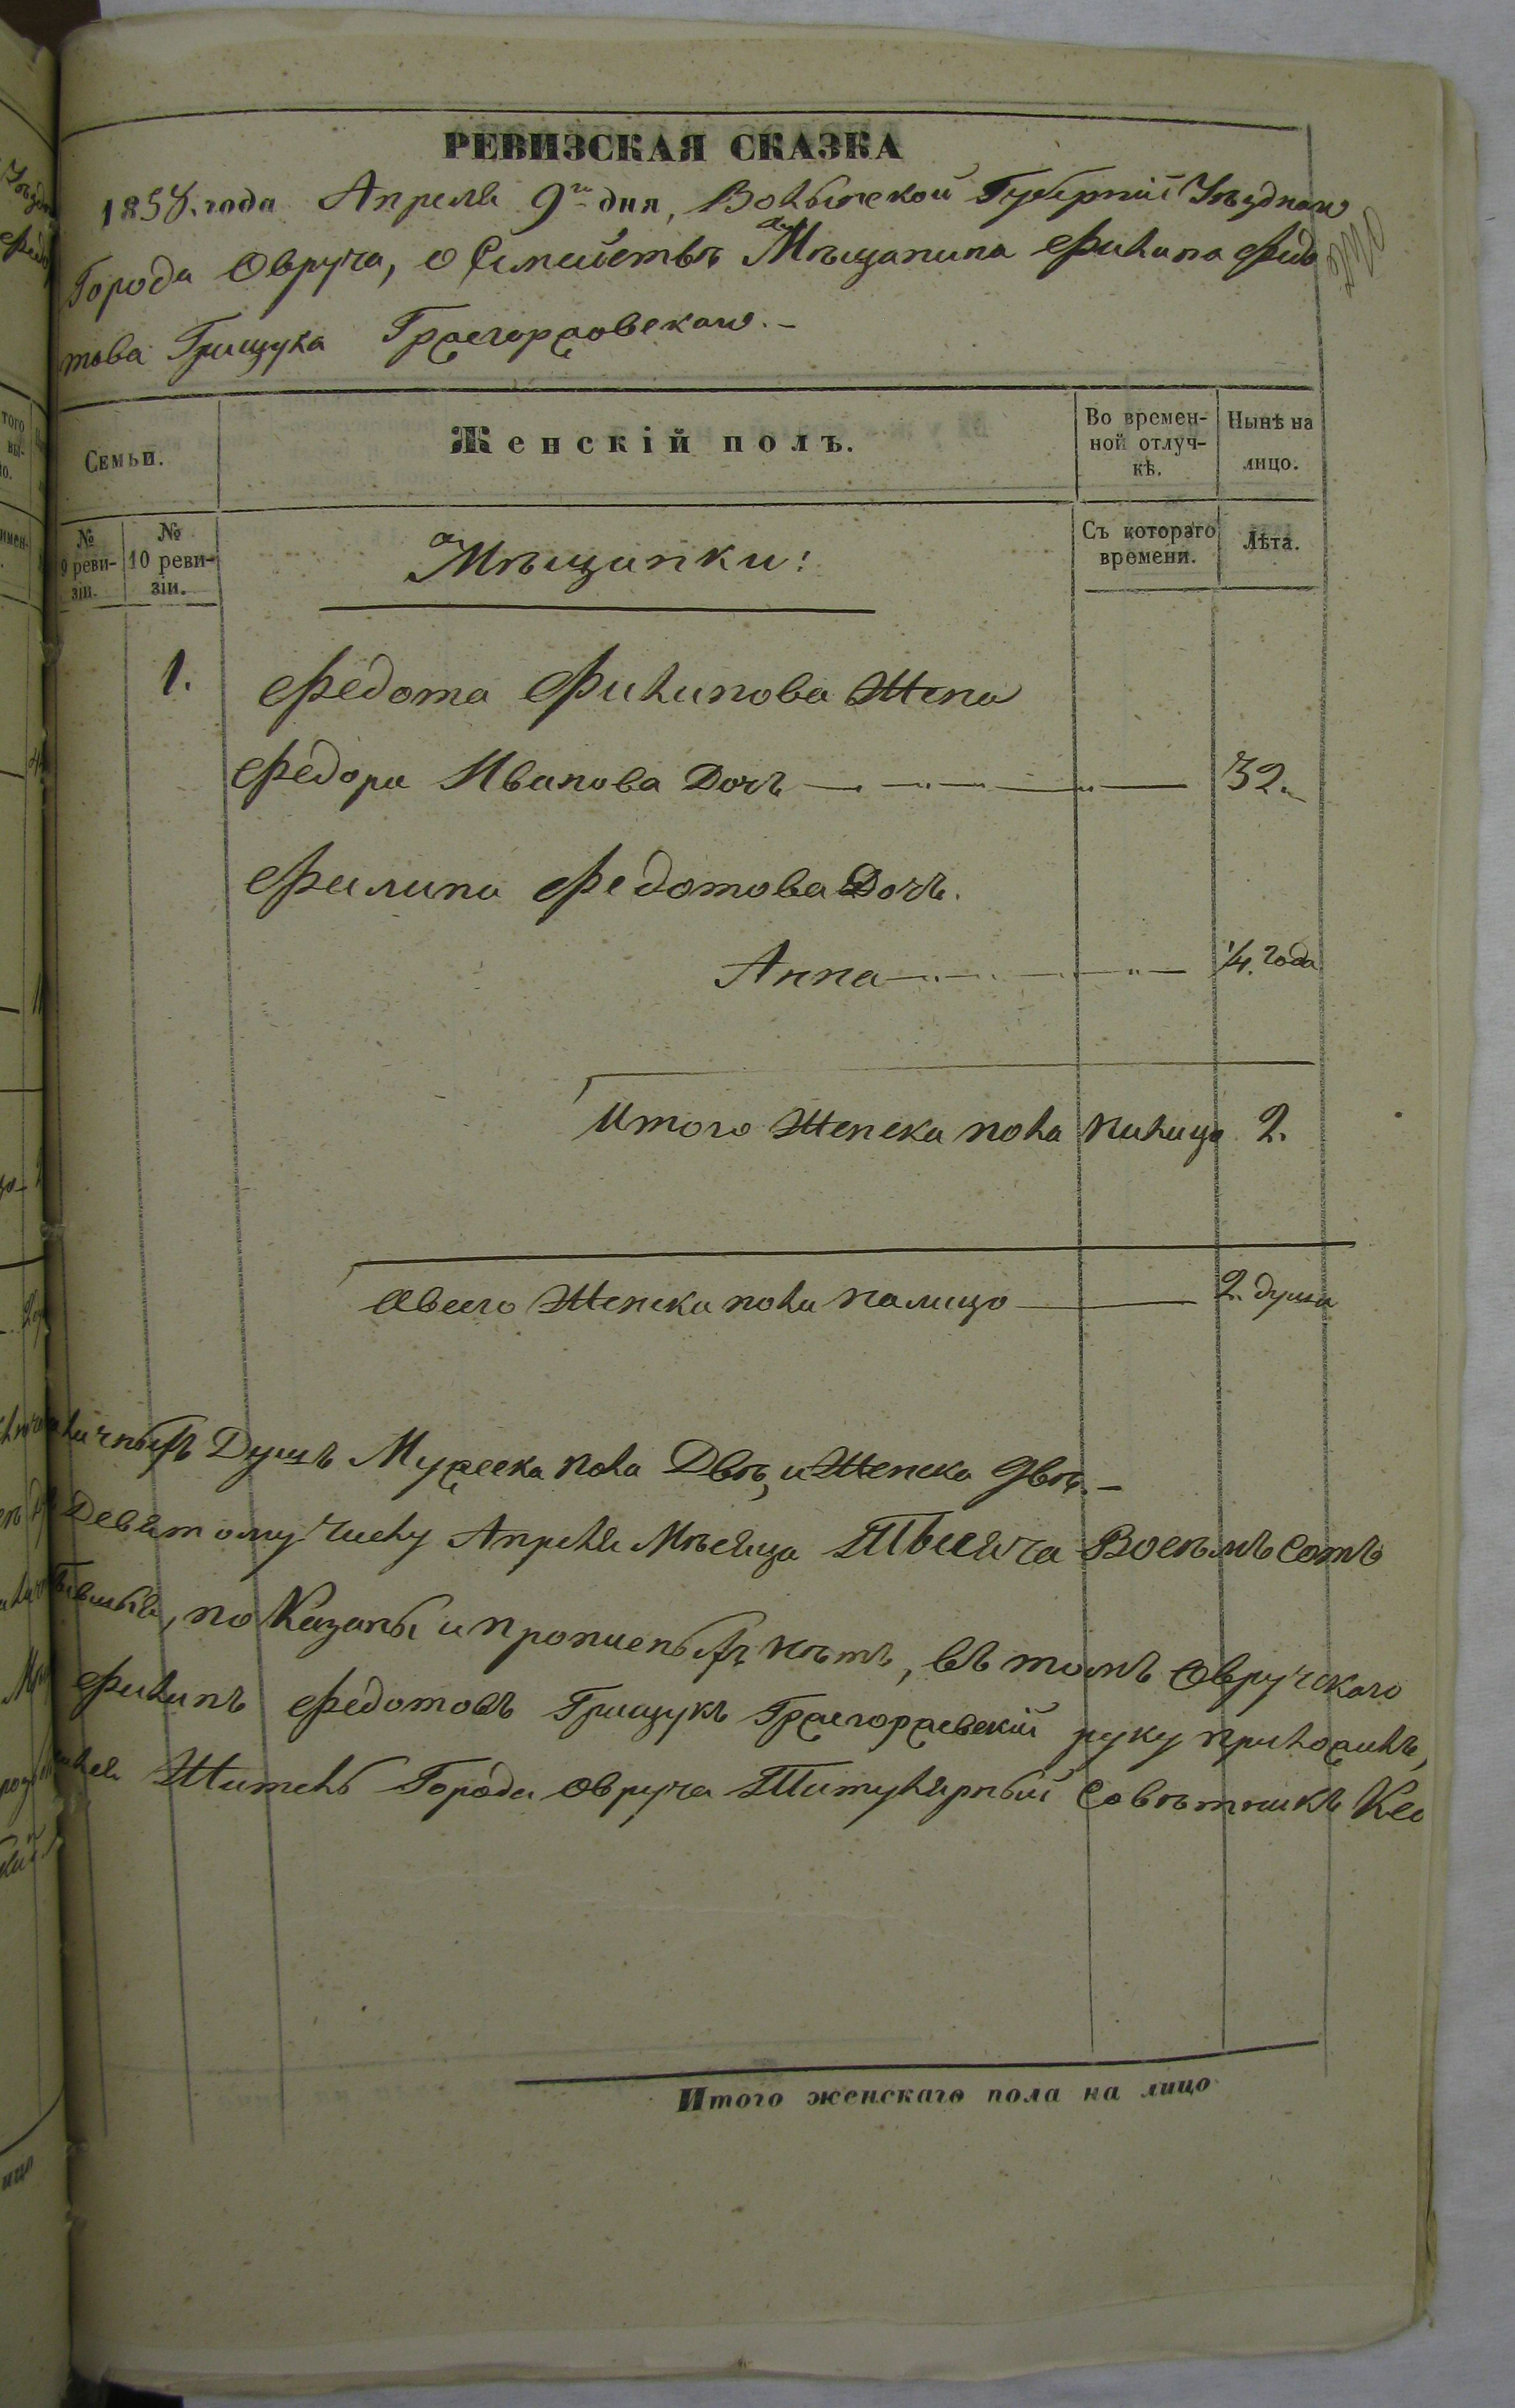 РЕВИЗСКАЯ СКАЗКА
1858. года Апреля 9го дня, Волынской Губерніи Уѣзднаго
Города Овруча, о Семействѣ Мѣщанина Филипа Федо
това Грищука
Семьи.
Женскій полъ.
Во времен-
ной отлуч-
кѣ.
Нынѣ на
лицо.
№
9 реви-
зіи.
№
10 реви-
зіи.
Мѣщанки:
Съ котораго
времени.
Лѣта.
1. Федота Филипова Жена
Федора Иванова Дочь 32.
Филипа Федотова Дочь.
Анна 1/4. года
Итого Женска пола налицо 2.
Авсего Женска пола налицо 2. души
личныхъ Душъ Мужеска пола Двѣ, и Женска Двѣ.
Девятому Числу Апреля Мѣсяца Тысяча Восемъ Сотъ
показаны и прописныхъ нѣтъ, въ томъ Овручскаго
Филипъ Федотовъ Грищукъ руку приложилъ,
Житель Города Овруча Титулярный Совѣтникъ
Итого женскаго пола на лицо